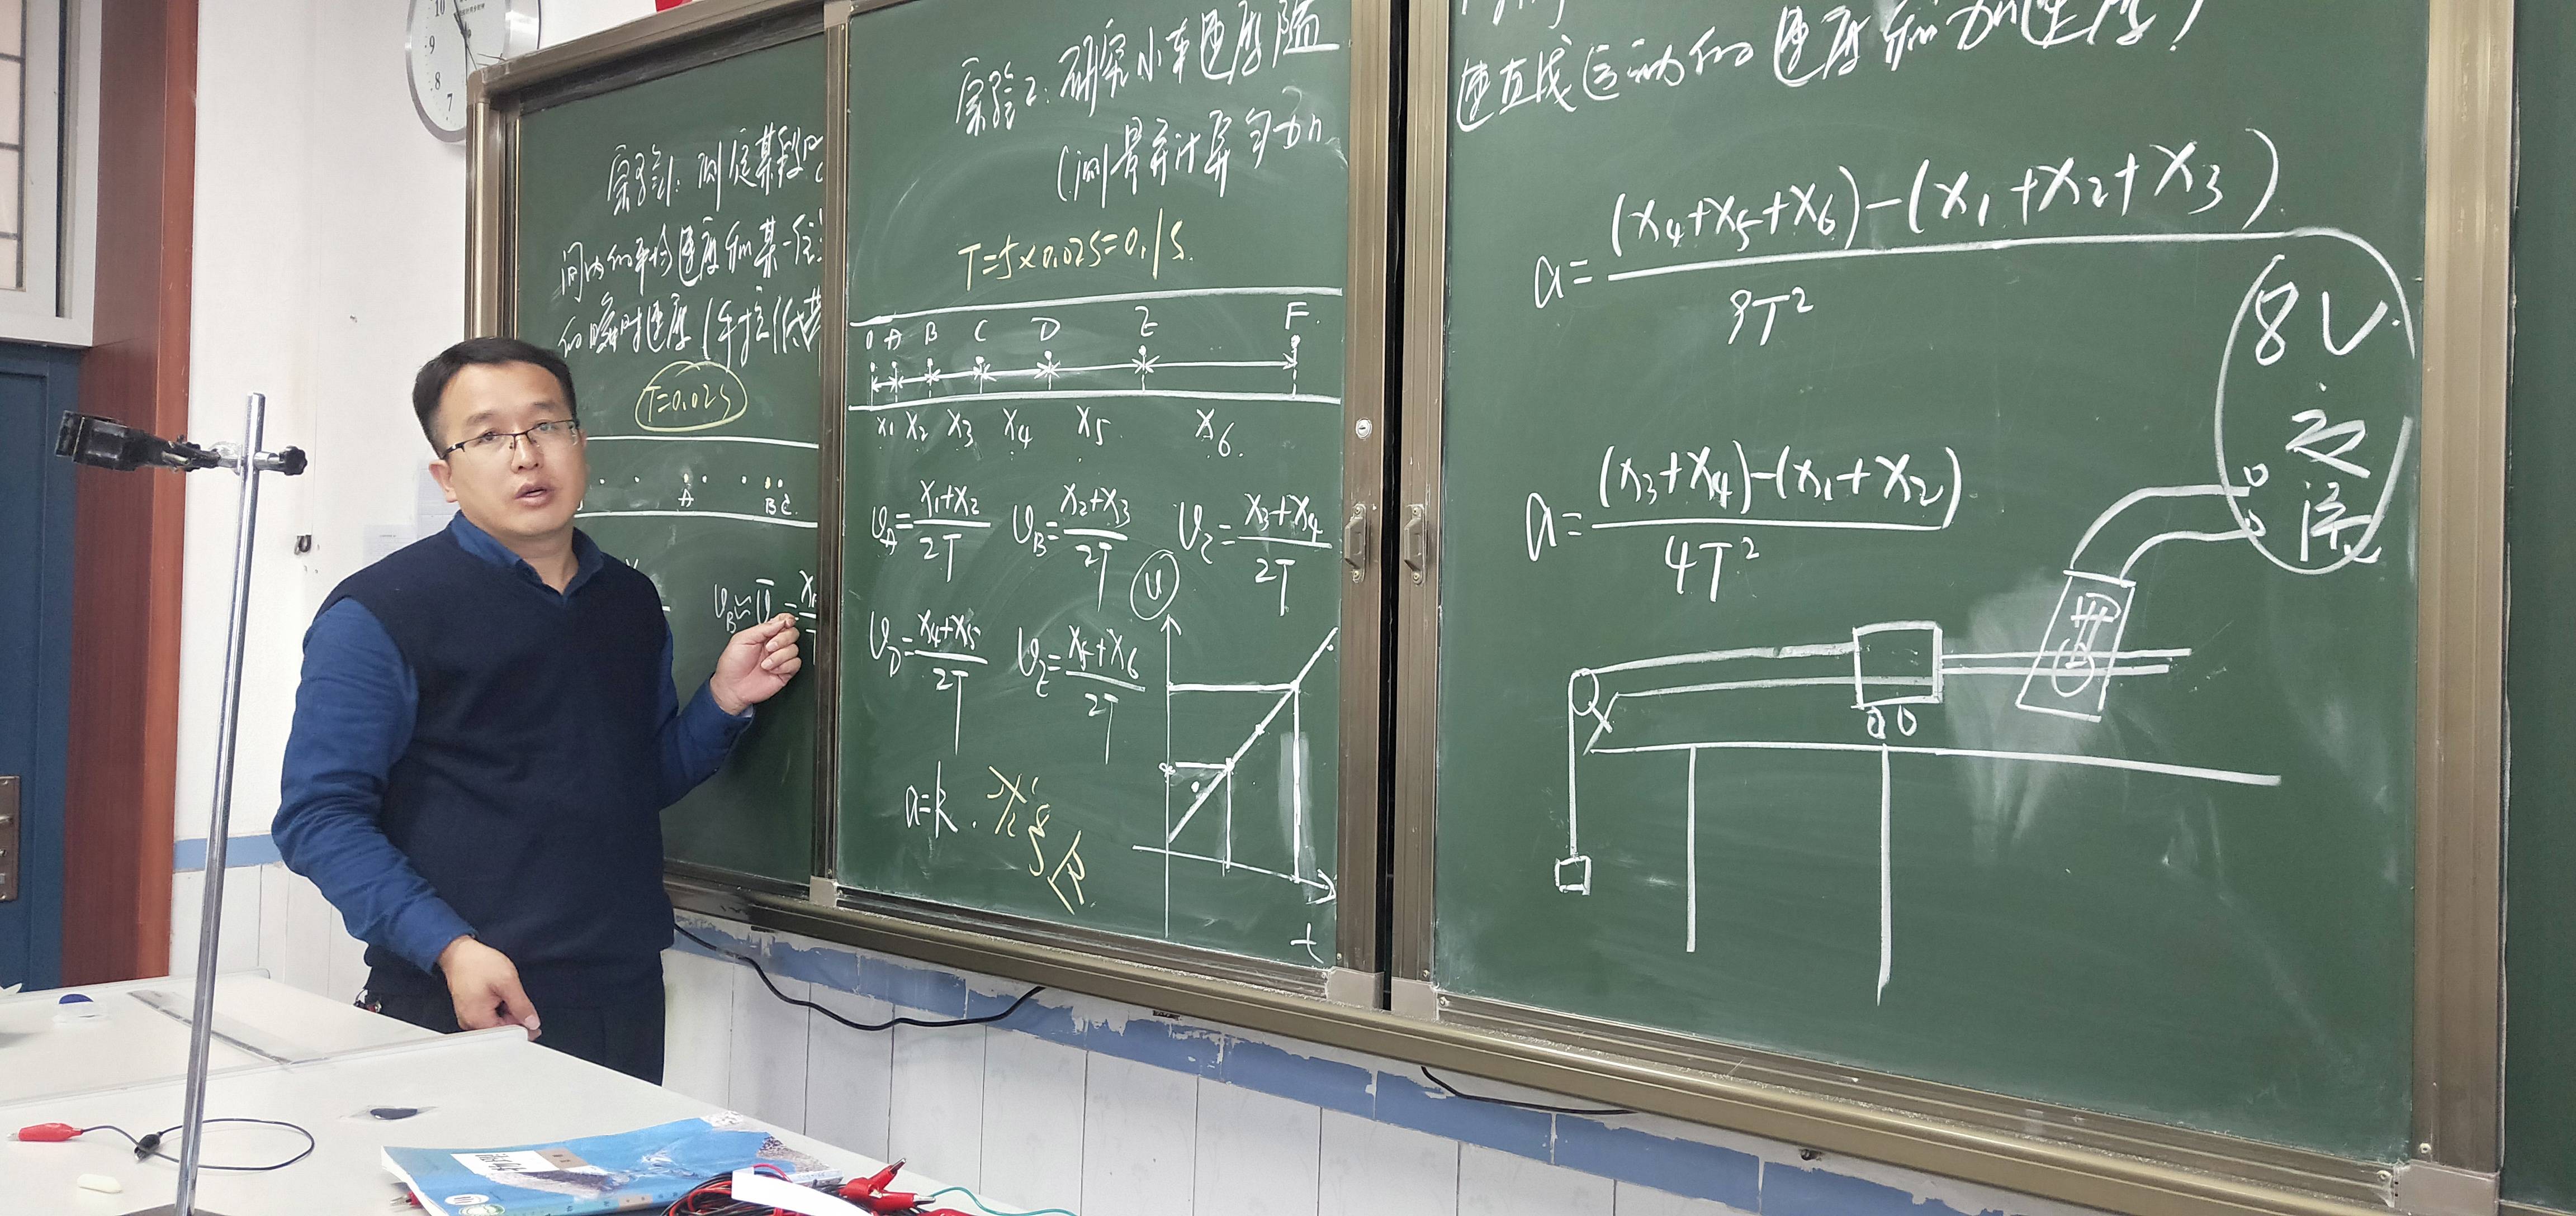 10
9
8
7
实验1: 测定某段时
间内的平均速度和某一位
的瞬时速度(手拉纸带
T=0.02S
A
B C
υB≈ῡ=
实验2: 研究小车速度随
(测量并计算匀加
T=5×0.02S=0.1S.
0 A B C D E F
x1 x2 x3 x4 x5 x6
υA=(x1+x2)/2T υB=(x2+x3)/2T υC=(x3+x4)/2T
υD=(x4+x5)/2T υE=(x5+x6)/2T
υ
t
a=k.
速直线运动的速度和加速度)
a=((x4+x5+x6)-(x1+x2+x3))/9T²
a=((x3+x4)-(x1+x2))/4T²
8V
交
流